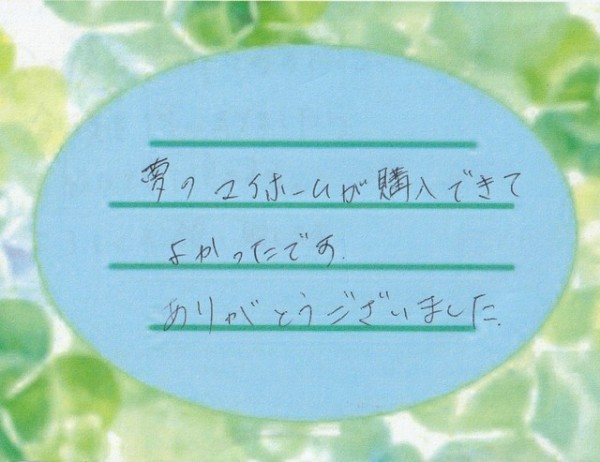 夢のマイホームが購入できて
よかったです.
ありがとうございました.